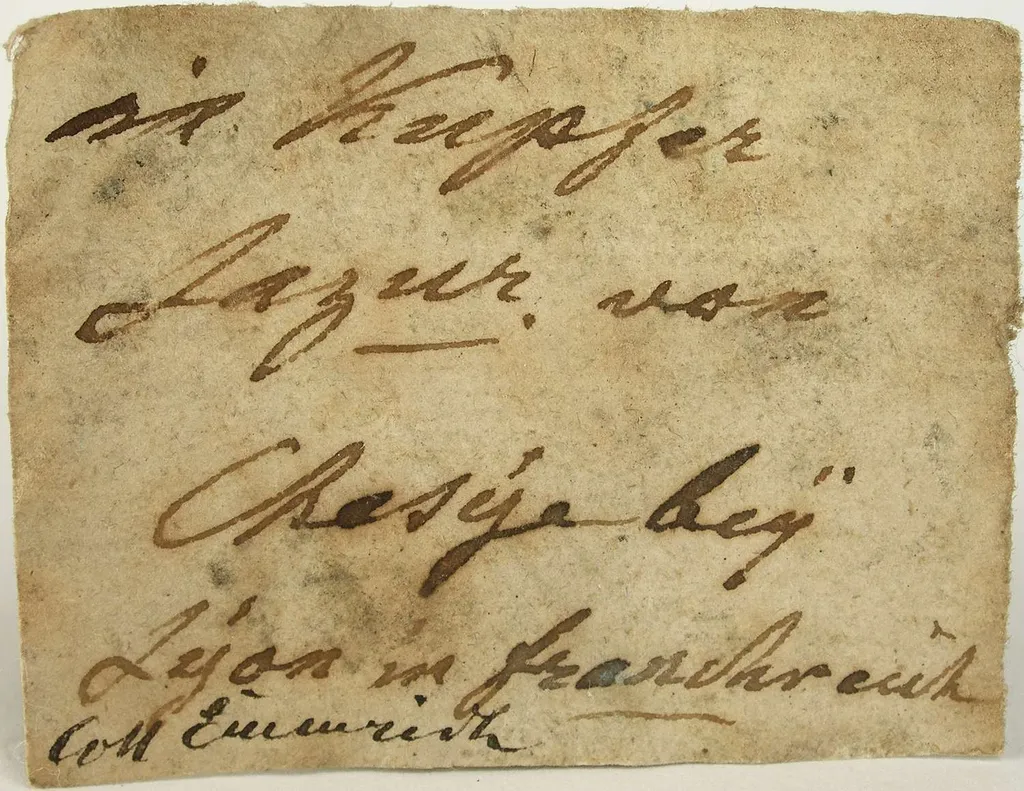 Kupfer
Lazur. von
Chesÿe beÿ
Lÿon in franckreich
Coll Emmrich